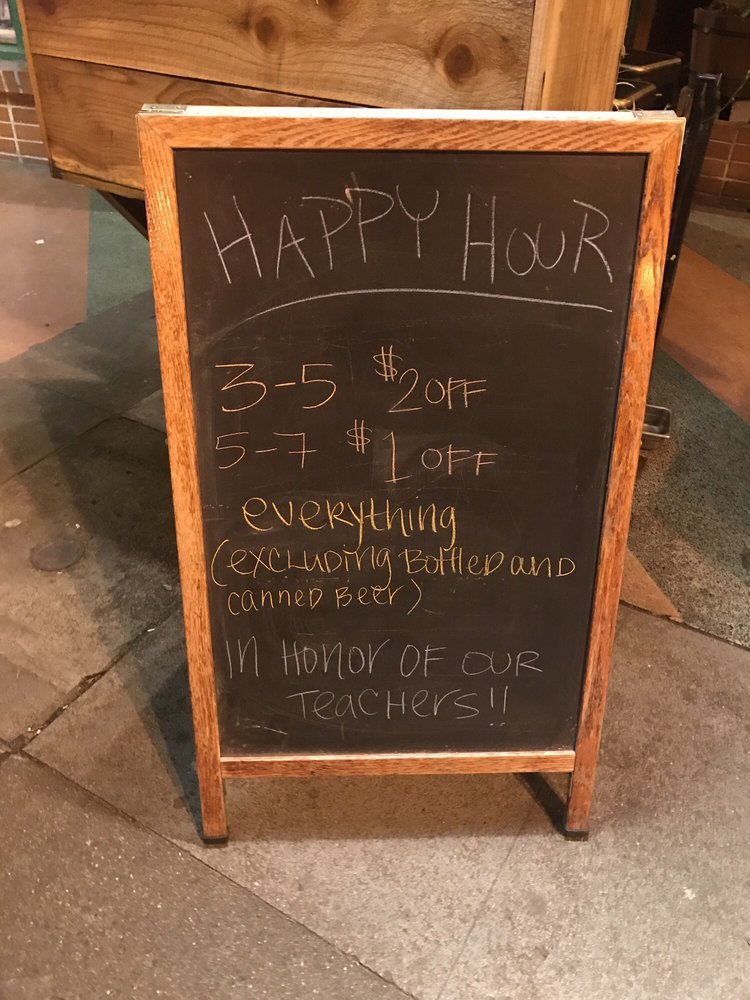 HAPPY HOUR
3-5 $2 OFF
5-7 $1 OFF
everything
(excluding Bottled and
canned Beer)
In Honor of our
Teachers!!